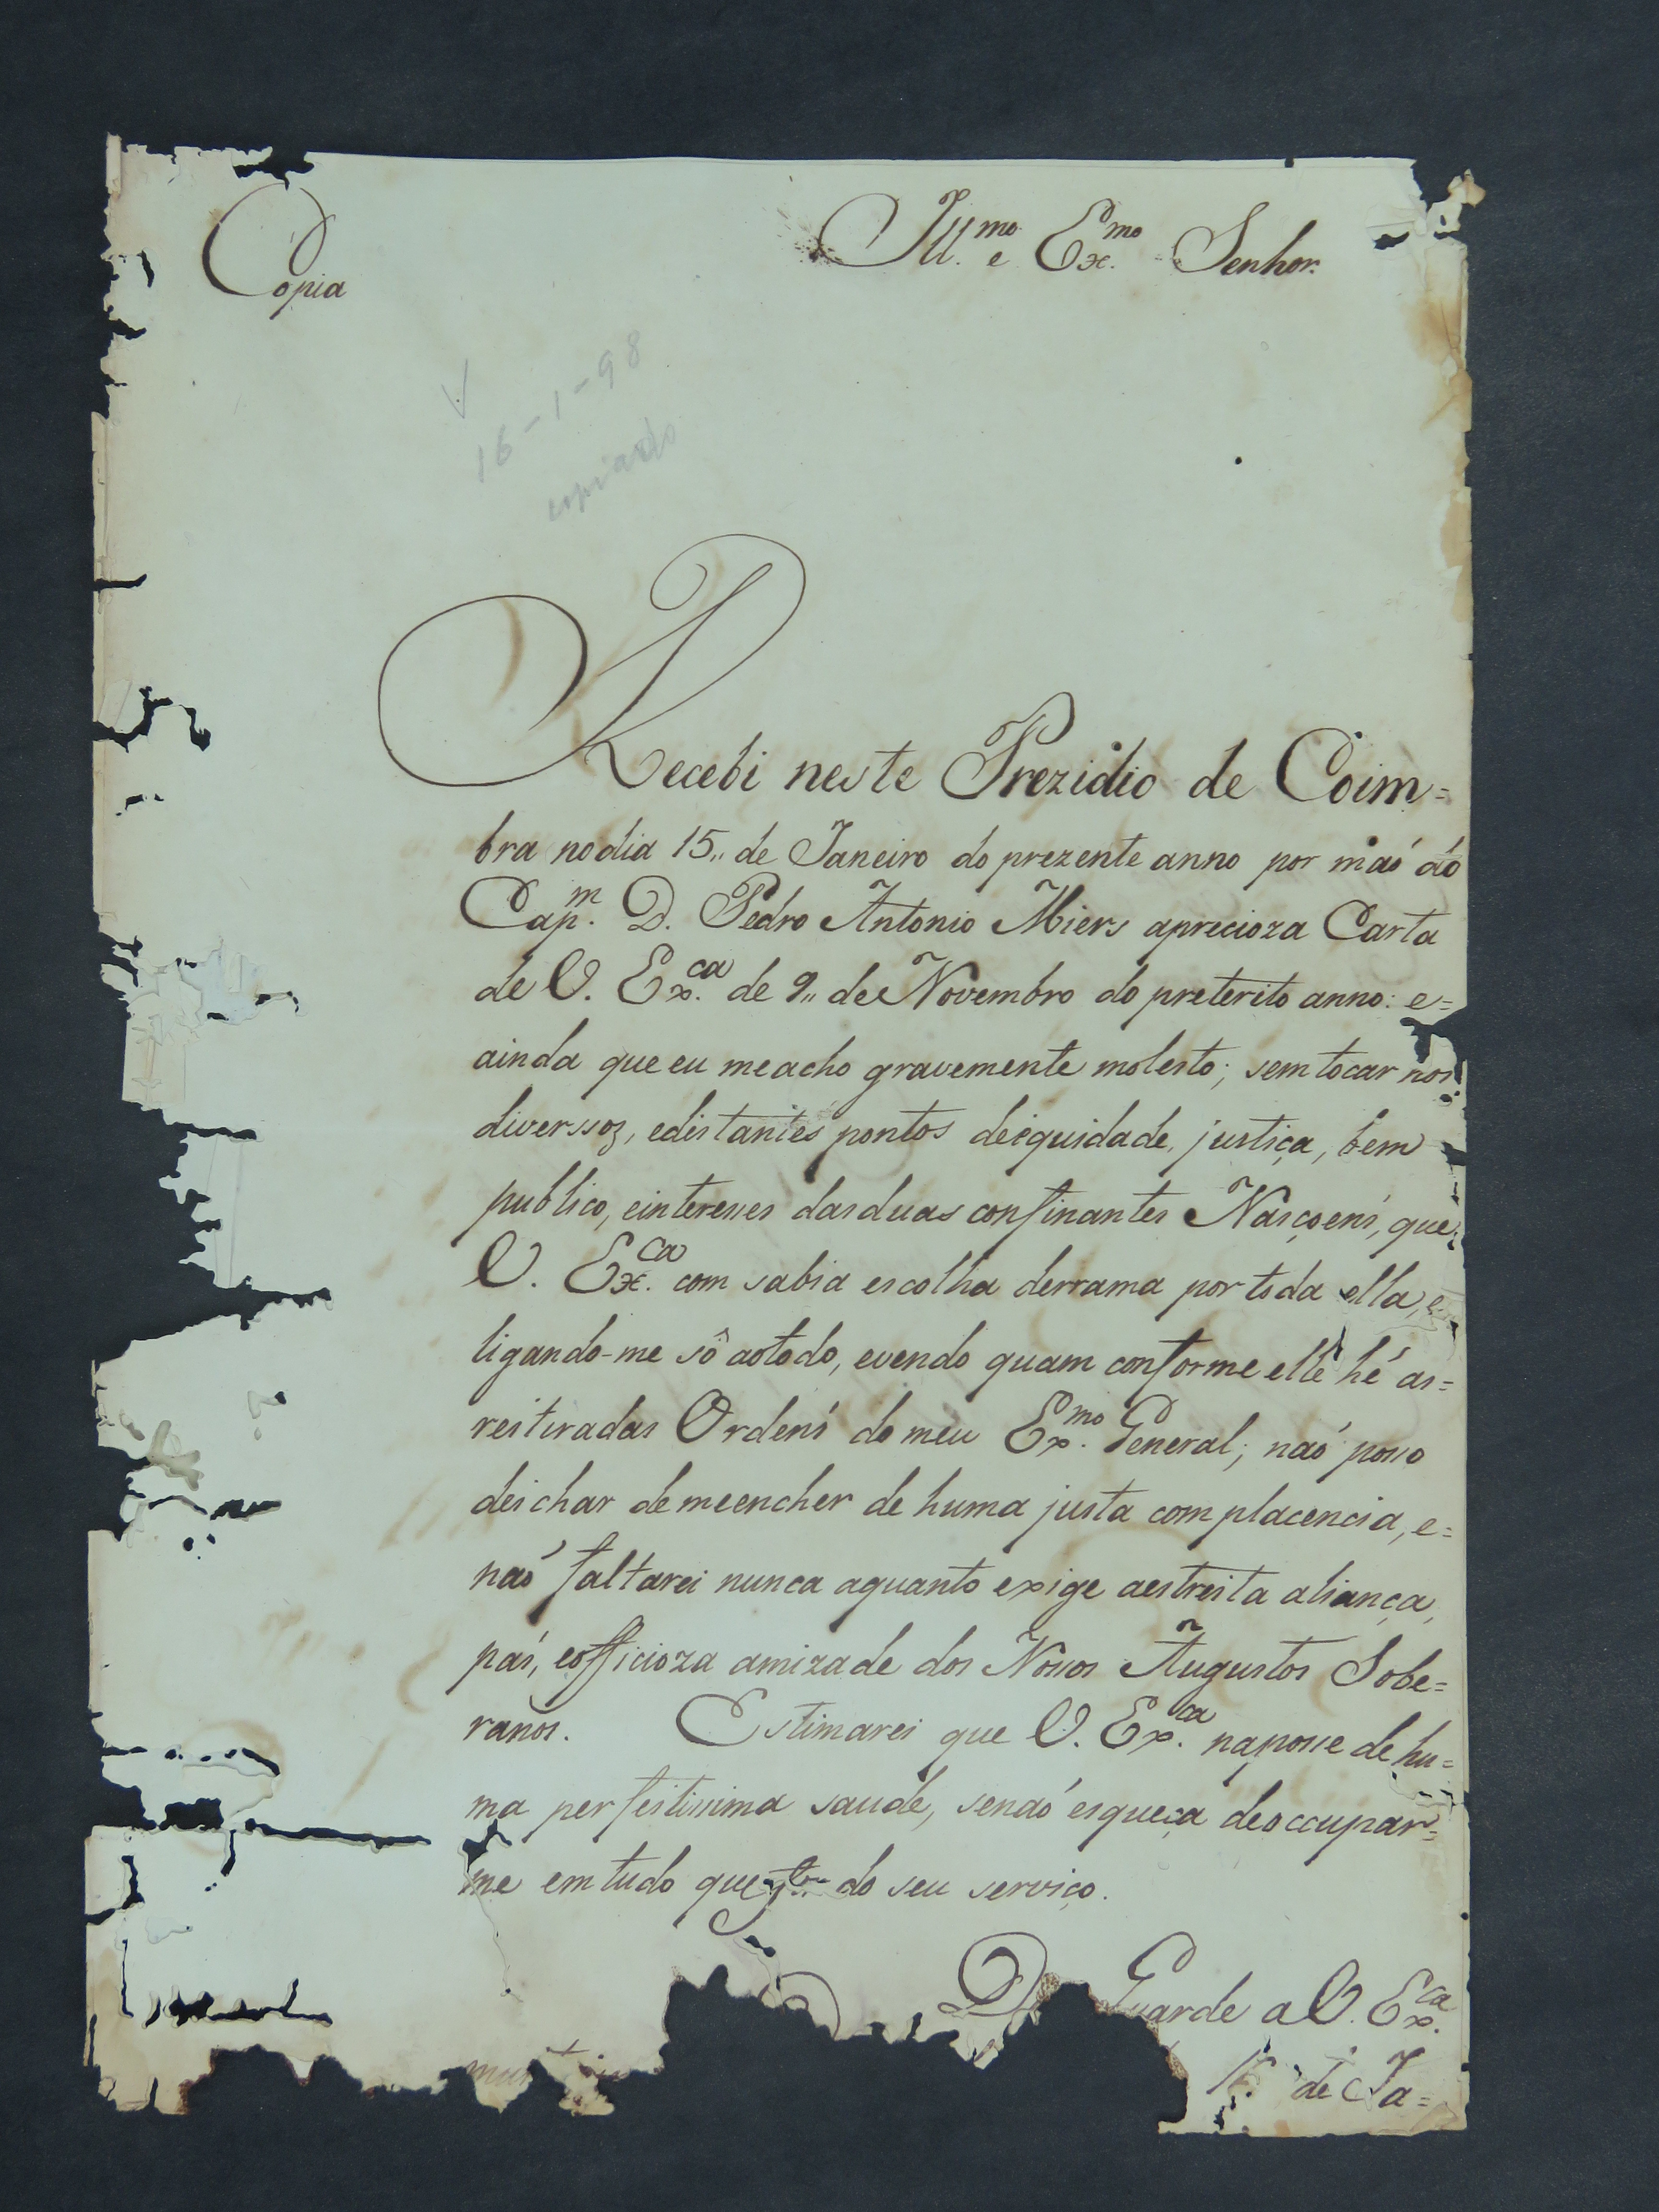 Copia
Ill.mo e Ex.mo Senhor.
V
16-1-98
copiado
Recebi neste Prezidio de Coim=
bra no dia 15,, de Janeiro do prezente anno por maõ do
Cap.m D. Pedro Antonio Miers aprecioza Carta
de V. Ex.ca de 9,, de Novembro do preterito anno: e=
ainda que eu meacho gravemente molesto; sem tocar nos
diverssoz, edistantes pontos deiquidade, justiça, bem
publico, einteresses dasduas confinantes Nasçoens, que
V. Ex.ca com sabia escolha derrama por toda ella, e
ligando-me sô aotodo, evendo quam conforme elle hé as=
reitiradas Ordens do meu Ex.mo General; naõ posso
deichar demeencher de huma justa complacencia, e=
naõ faltarei nunca aquanto exige aestreita aliança,
pas, eofficioza amizade dos Nossos Augustos Sobe=
ranos. Estimarei que V. Ex.ca naposse de hu=
ma perfeitissima saude, senaõ esqueça deoccupar=
me em tudo que do seu serviço.
Guarde a V. Ex.ca
de Ja=